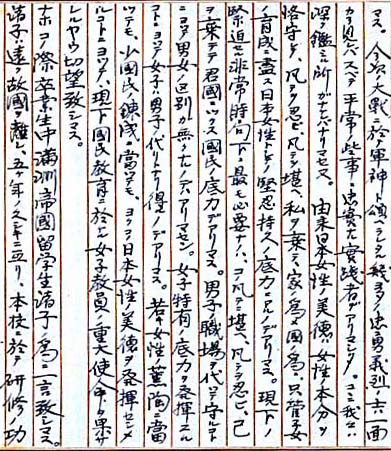 マス。今次大戰ニ於テ軍神ト頌ヘラレル幾多ノ忠勇義烈ノ士ノ一面
ヲ見レバ、スベテ平常些事ニ忠實ナ實踐者デアリマシタ。コヽニ我々ハ
深ク鑑ミル所ガナケレバナリマセヌ。由來日本女性ノ美德ハ女性ノ本分ヲ
恪守シテ、凡テヲ忍ビ、凡テニ堪ヘ、私ヲ棄テ、家ノ爲メ國ノ爲メ、只管子女ノ
育成ニ盡ス日本女性トシテノ堅忍持久ノ底力ニアルノデアリマス。現下ノ
緊迫セル非常時局下ニ最モ必要ナノハ、コノ凡テニ堪ヘ、凡テヲ忍ビ、己
ヲ棄テ、君國ニツクス國民ノ底力デアリマス。男子ノ職場ニ代ッテ守ルコト
ニヨッテ男女ノ區別ガ無クナルノデハアリマセン。女子特有ノ底力ヲ發揮スル
コトニヨッテ女子ハ男子ニ代リ得ルノデアリマス。若キ女性ノ薰陶ニ當
ツテモ、少國民ノ鍊成ニ當ツテモ、ヨク日本女性ノ美德ヲ發揮セシメ
ルコトニヨッテ、現下國民敎育ニ於ケル女子敎員ノ重大使命ヲ果サ
レルヤウ切望致シマス。
ナホコノ際卒業生中滿洲帝國留學生諸子ノ爲ニ一言致シマス。
諸子ハ遠ク故國ヲ離レ、五ヶ年ノ久シキニ亙リ、本校ニ於テ研修ノ功